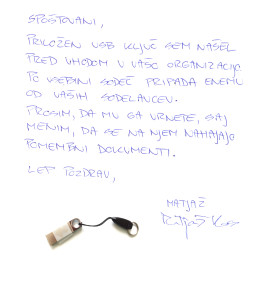 SPOŠTOVANI,
PRILOŽEN USB KLJUČ SEM NAŠEL
PRED VHODOM V VAŠO ORGANIZACIJO.
PO VSEBINI SODEČ PRIPADA ENEMU
OD VAŠIH SODELAVCEV.
PROSIM, DA MU GA VRNETE, SAJ
MENIM, DA SE NA NJEM NAHAJAJO
POMEMBNI DOKUMENTI.
LEP POZDRAV,
MATJAŽ